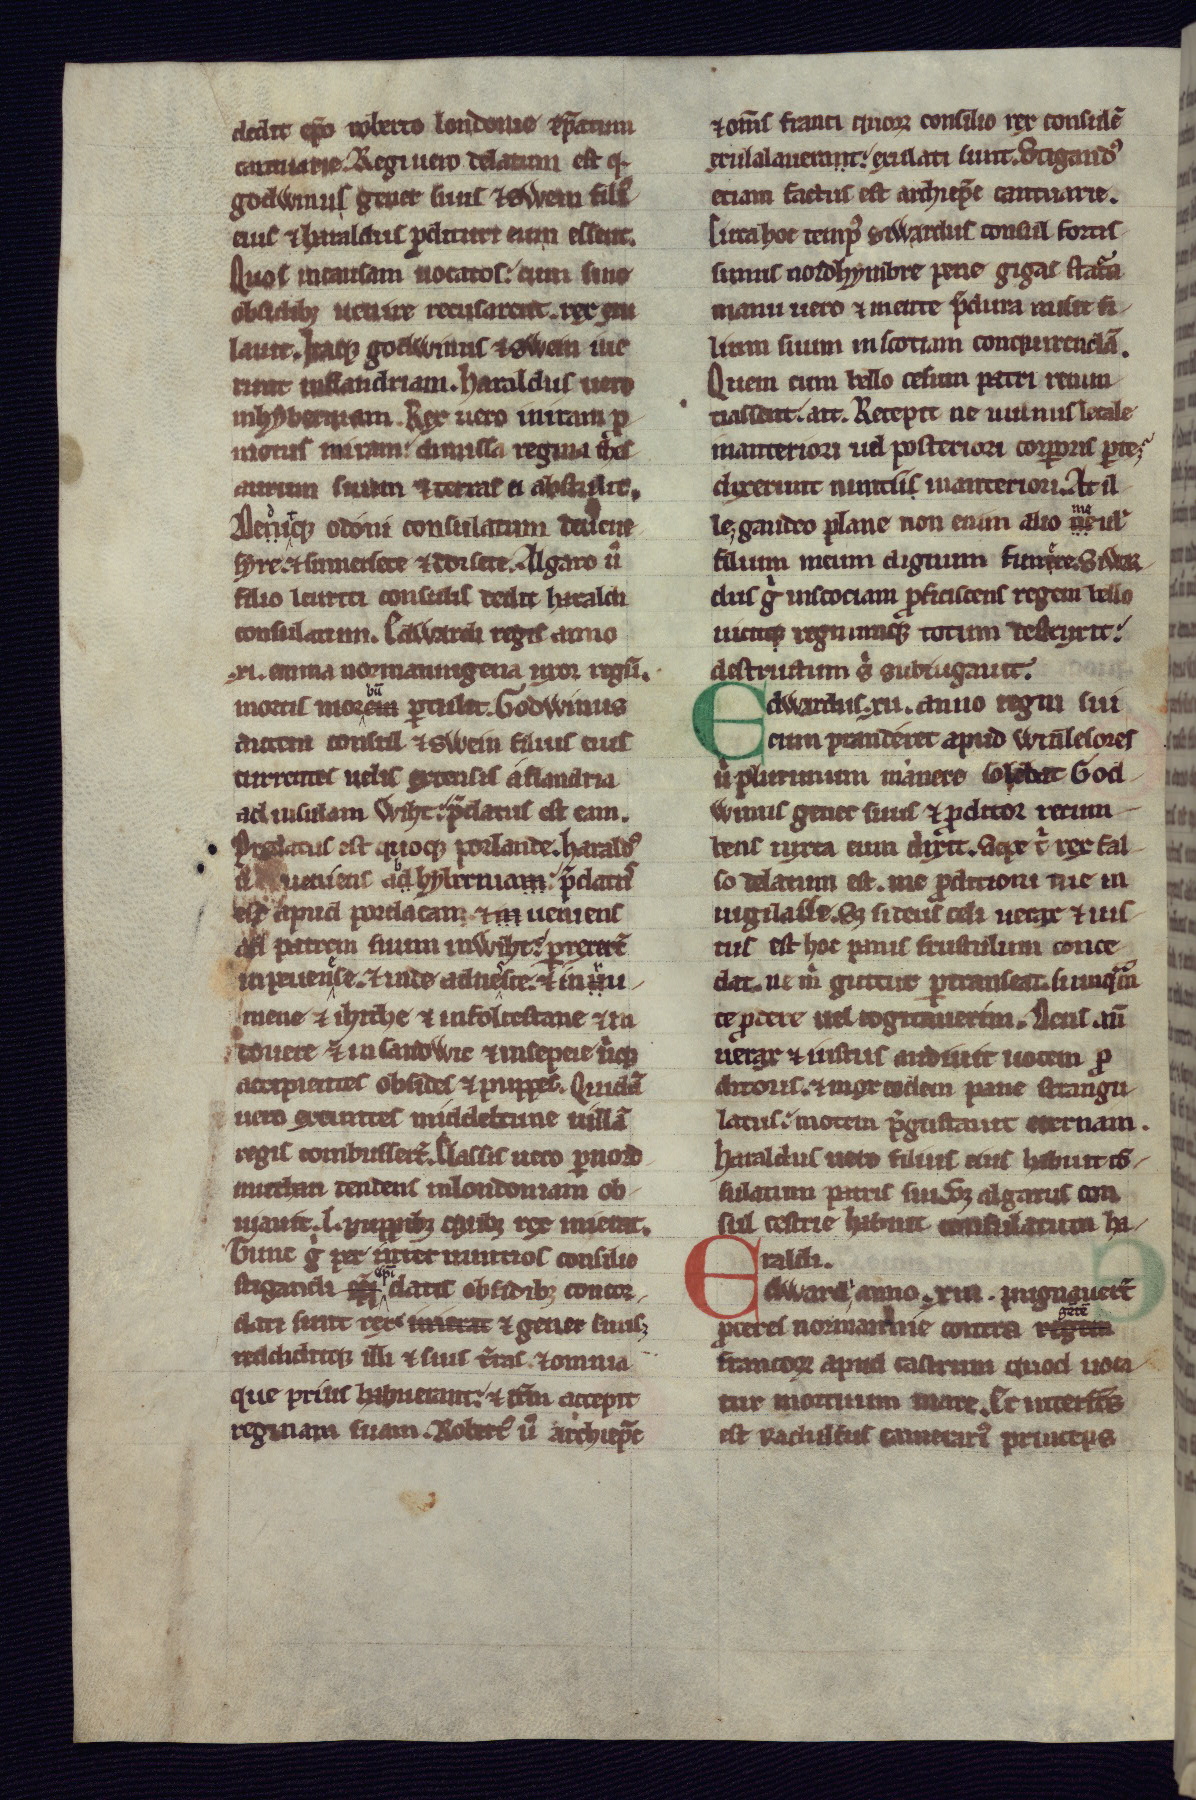 dedit ep̄o roberto londonie ep̄atum
cantuarie. Regi uero delatum est q
godwinus gener suus ⁊ swein filiꝰ
eius ⁊ haraldus ꝓdituri eum essent.
Quos incausam uocatos: cum sine
obsidibꝫ uenire recusarent. rex exu
lauit. Itaqꝫ godwinus ⁊ swein iue
runt inflandriam. haraldus uero
inhyberniam. Rex uero iniram ꝓ
motus dimissa regina thes
aurum suum ⁊ terras ei abstulit.
odoni consulatum deuene
syre. ⁊ sumersete ⁊ dorsete. Algaro ū
filio leurici consulis dedit haraldi
consulatum. Edwardi regis anno
.xi. emma normannigena uxor regū.
mortis ꝑtulit. Godwinus
autem consul ⁊ swein filius eius
currentes uelis extensis a flandria
ad insulam Wiht: p̄datus est eam.
Predatus est quoqꝫ porlande. haraldꝰ
ueniens ab hybernia: p̄datꝰ
est apud portlacam ⁊ ueniens
ad patrem suum inwiht: 
inpeuenese. ⁊ inde ad ⁊ in
mene ⁊ ⁊ infolcestane ⁊ in
douere ⁊ in sandwic ⁊ insepeie
accipientes obsides ⁊ puppes. Quidā
uero exeuntes middeltune uillā
regis combusserūt. Classis uero ꝑnord
muthan tendens inlondoniam ob
uiauit .l. puppibꝫ quibꝫ rex mierat.
Tunc g per internuntios consilio
stigandi ep̄i datis obsidibꝫ concor
dati sunt rex ⁊ gener suus;
reddiditqꝫ illi ⁊ suis t̄ras. ⁊ omnia
que prius habuerant: ⁊ accepit
reginam suam. Robertꝰ ū archiep̄c
⁊ om̄s franci quorꝫ consilio rex consulē
exulauerunt: exulati sunt. Stigandꝰ
etiam factus est archiep̄c cantuarie.
Circa hoc tempꝰ siwardus consul fortis
simus nordhymbre pene gigas staturā
manu uero ⁊ mente p̄dura misit fi
lium suum inscotiam conquirendā.
Quem cum bello cesum patri renun
tiassent. ait. Recepit ne uulnus letale
inanteriori uel posteriori corporis ꝑte?
dixerunt nuntii inanteriori. At il
le; gaudeo plane non enim alio me uel
filium meum dignum funere. Siwar
dus g inscociam ꝓficiscens regem bello
uicit regnumqꝫ totum destruxit:
destructum s subiugauit.
Edwardus .xii. anno regni sui
cum pranderet apud windlesores
ū plurimum manere solebat God
winus gener suus ⁊ ꝓditor recum
bens iuxta eum dixit. Sepe t rex fal
so delatum est. me ꝓditioni tue in
uigilasse. Sꝫ si deus celi uerax ⁊ ius
tus est hoc panis frustulum conce
dat. ne m guttur ꝑtranseat. si unq̄m
te ꝓdere uel cogitauerim. Deus aū
uerax ⁊ iustus audiuit uocem ꝓ
ditoris. ⁊ mox eodem pane strangu
latus: motem p̄gustauit eternam.
Haraldus uero filius eius habuit cō
sulatum patris sui. Sꝫ algarus con
sul cestrie habuit consulatum ha
raldi.
Edwardꝰ anno .xiii. pugnauerūt
ꝓceres normannie contra gētē
francorꝫ apud castrum quod uoca
tur mortuum mare. Et
est radulfus camerariꝰ princeps